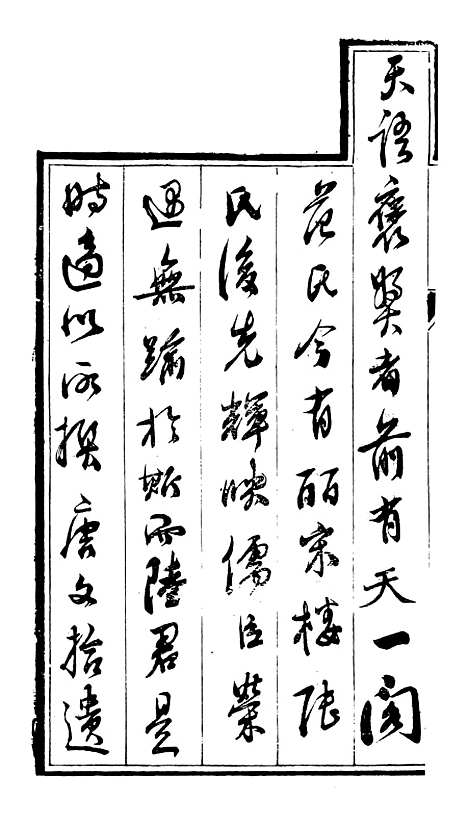 天語褒獎者前有天一閣
范氏今有皕宋樓陸
氏後先輝映儒臣榮
遇無踰於斯而陸君是
時適以所撰唐文拾遺